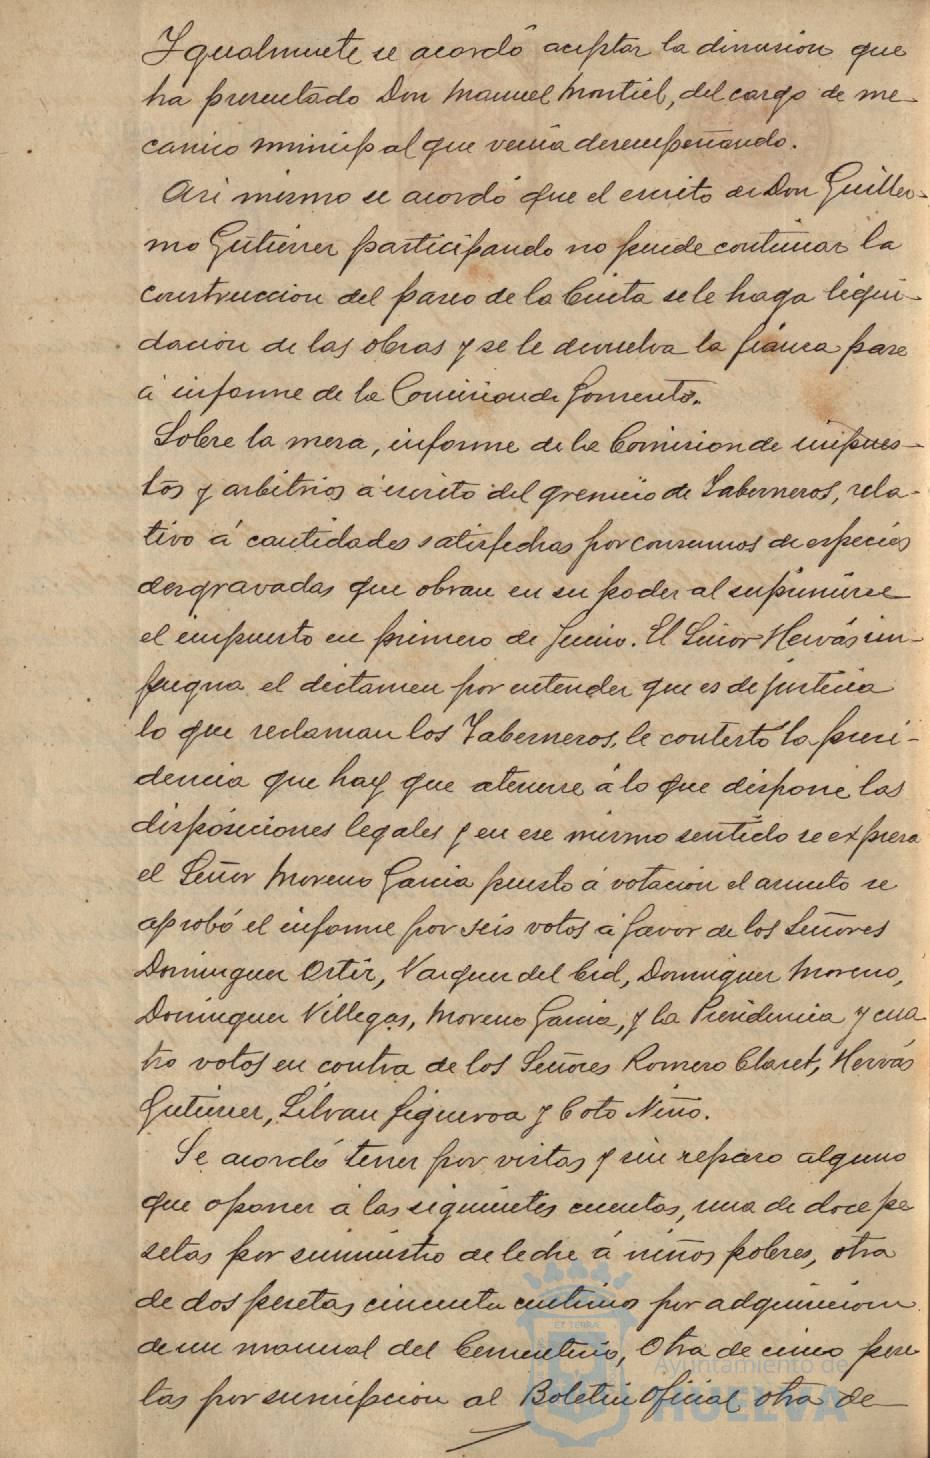 Igualmente se acordó aceptar la dimision que
ha presentado Don Manuel Montiel, del cargo de me-
canico municipal que venia desempeñando.
Asi mismo se acordó que el escrito de Don Guiller-
mo Gutierrez participando no puede continuar la
construccion del paseo de la Cinta se le haga liqui-
dacion de las obras y se le devuelva la fianza pase
á informe de la Comision de Fomento.
Sobre la mesa, informe de la Comision de impues-
tos y arbitrios á escrito del gremio de Taberneros, rela-
tivo á cantidades satisfechas por consumos de especies
desgravadas que obran en su poder al suprimirse
el impuesto en primero de Junio. El Señor Hervás im-
pugna el dictamen por entender que es de justicia
lo que reclaman los Taberneros, le contestó la presi-
dencia que hay que atenerse á lo que dispone las
disposiciones legales y en ese mismo sentido se expresa
el Señor Moreno Garcia puesto á votacion el asunto se
aprobó el informe por seis votos á favor de los Señores
Dominguez Ortiz, Vazquez del Cid, Dominguez Moreno,
Dominguez Villegas, Moreno Garcia, y la Presidencia y cua
tro votos en contra de los Señores Romero Claret, Hervás
Gutierrez, Silvan Figueroa y Coto Niño.
Se acordó tener por vistas y sin reparo alguno
que oponer á las siguientes cuentas, una de doce pe
setas por suministro de leche á niños pobres, otra
de dos pesetas cincuenta centimos por adquisicion
de un manual del Cementerio, Otra de cinco pese
tas por suscripcion al Boletin Oficial otra de
ET TERRÆ
Ayuntamiento de
HUELVA